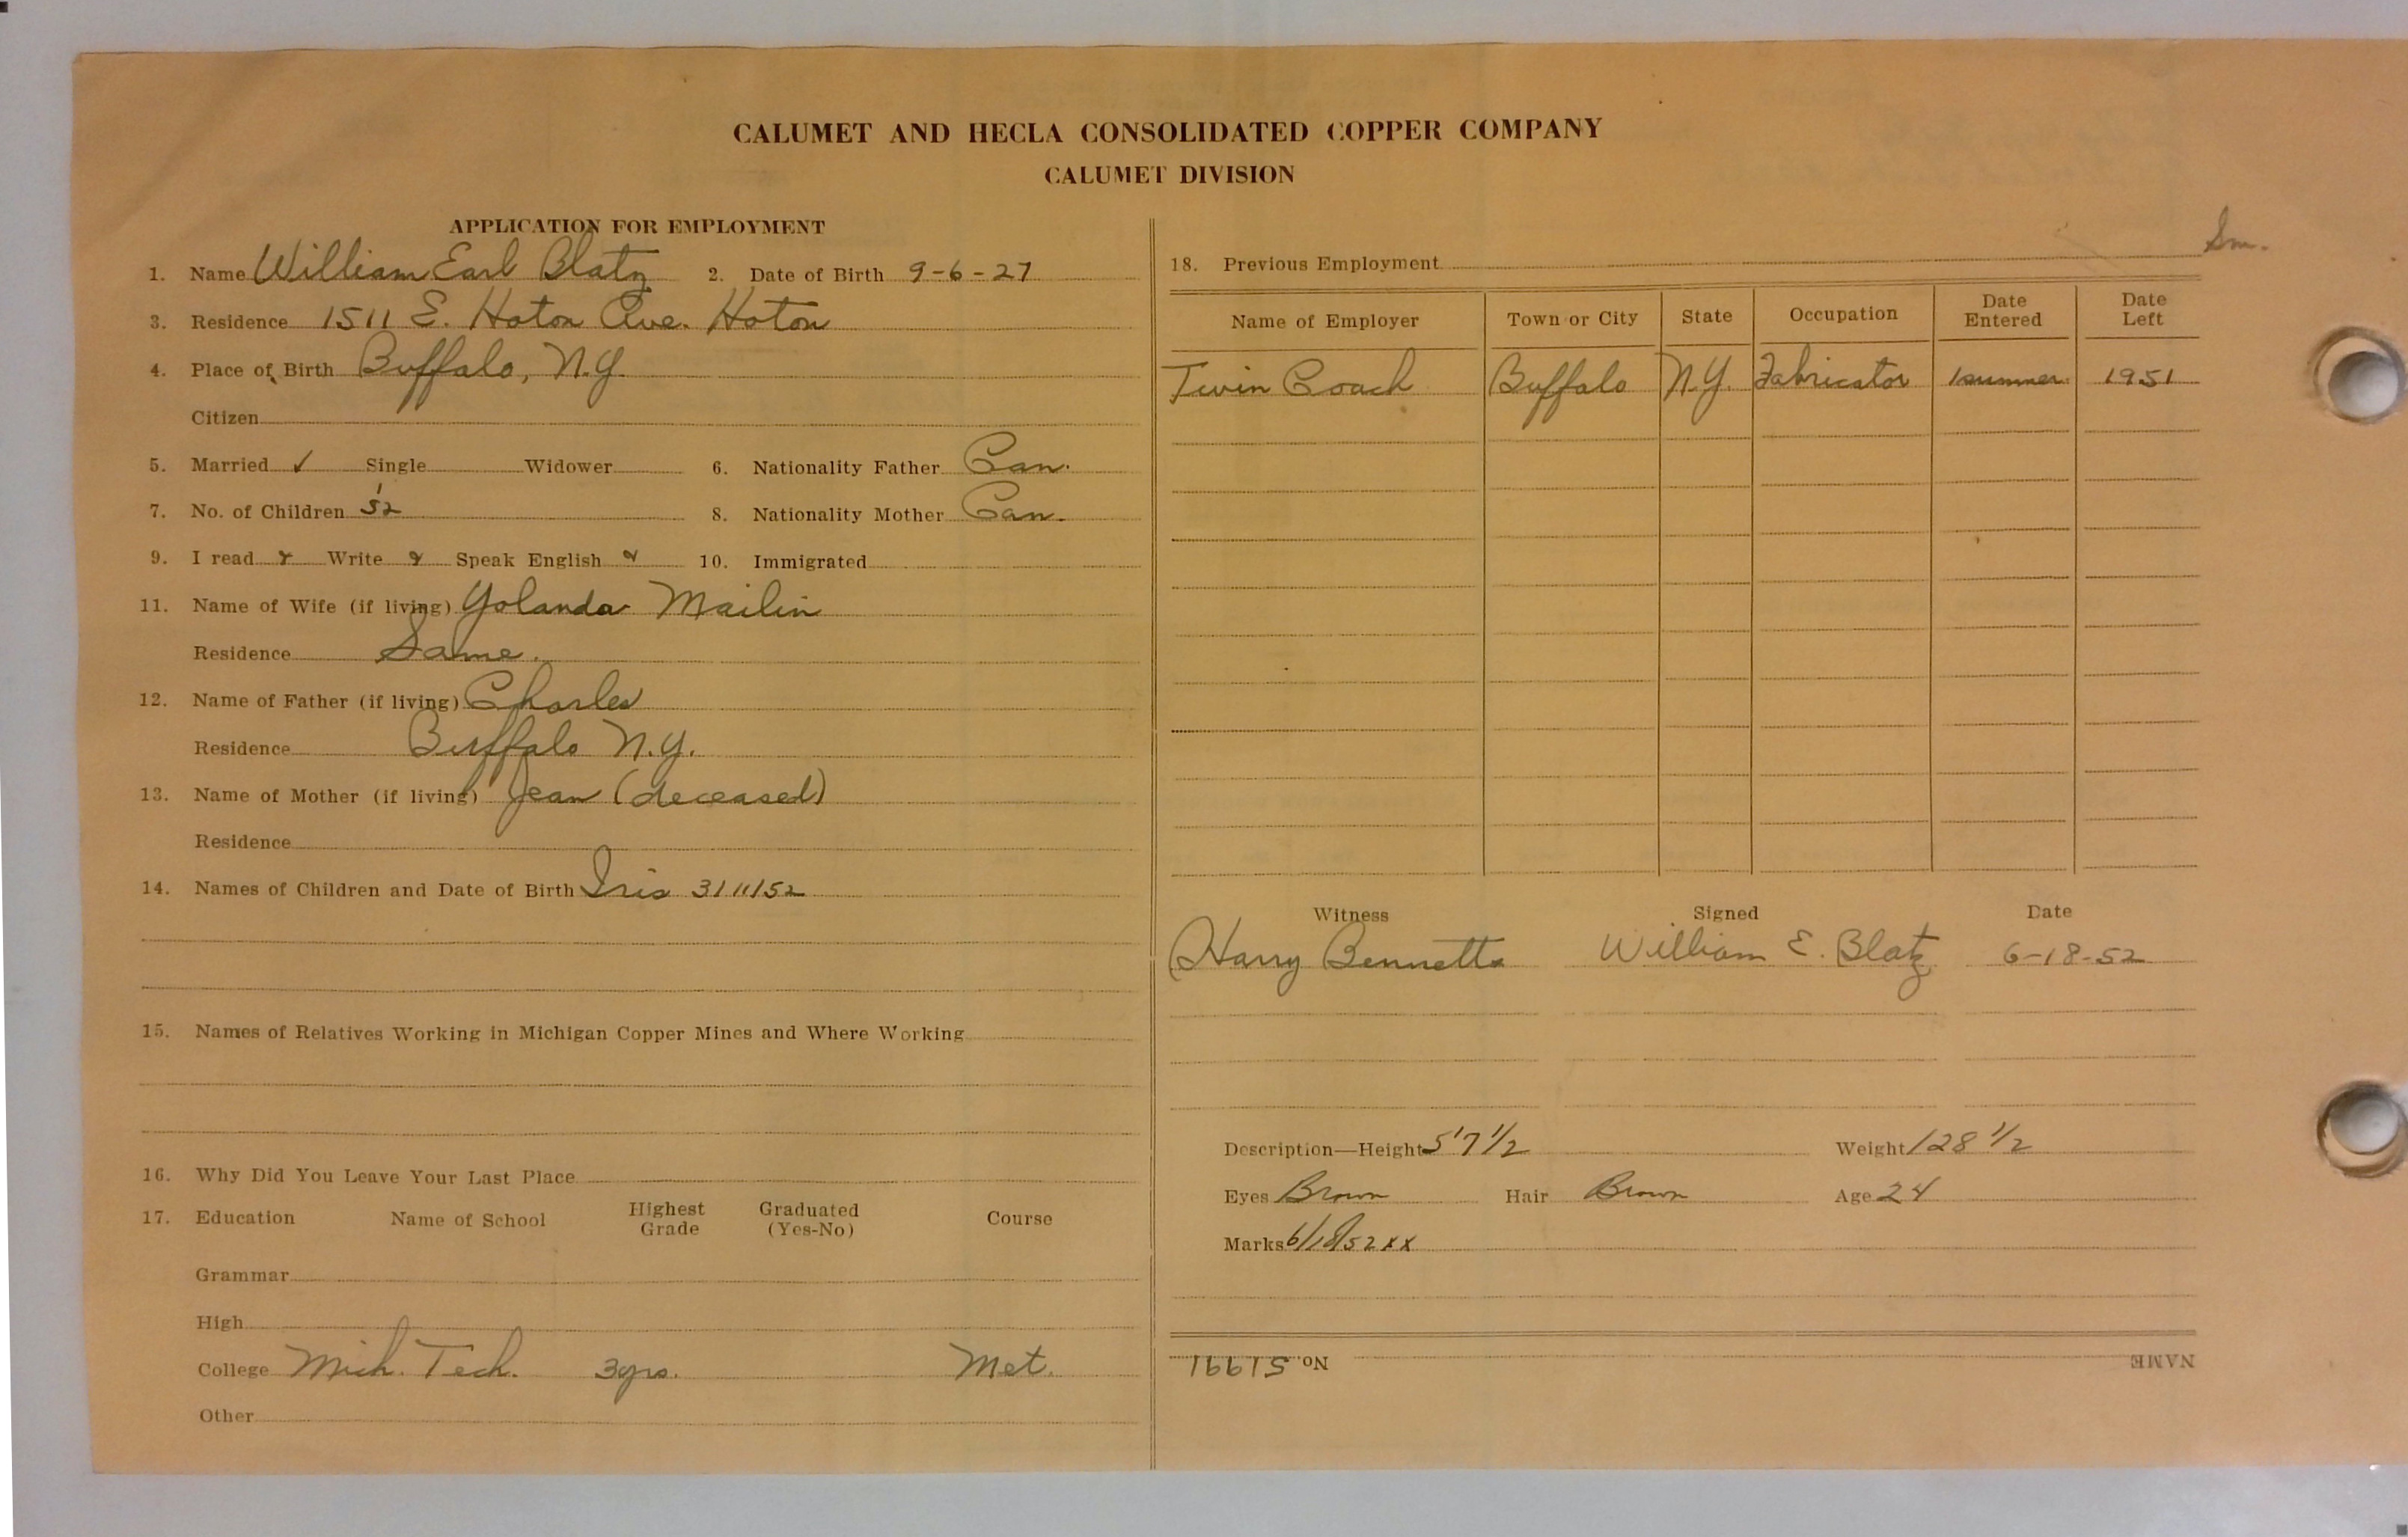 CALUMET AND HECLA CONSOLIDATED COPPER COMPANY
CALUMET DIVISION
APPLICATION FOR EMPLOYMENT
1. Name William Earl Blatz 2. Date of Birth 9-6-27
3. Residence 1511 E. Hoton Ave. Hoton
4. Place of Birth Buffalo, N.Y.
Citizen
5. Married ✓ Single Widower 6. Nationality Father Can.
7. No. of Children 1 52 8. Nationality Mother Can.
9. I read Write Speak English 10. Immigrated
11. Name of Wife (if living) Yolanda Mailin
Residence Same.
12. Name of Father (if living) Charles
Residence Buffalo N.Y.
13. Name of Mother (if living) Jean (deceased)
Residence
14. Names of Children and Date of Birth Iris 3/11/52
15. Names of Relatives Working in Michigan Copper Mines and Where Working
16. Why Did You Leave Your Last Place
17. Education Name of School Highest Grade Graduated (Yes-No) Course
Grammar
High
College Mich. Tech. 3 yrs. Met.
Other
Sm.
18. Previous Employment
Name of Employer Town or City State Occupation Date Entered Date Left
Twin Coach Buffalo N.Y. Fabricator 1 summer 1951
Witness Signed Date
Harry Bennetts William E. Blatz 6-18-52
Description—Height 5'7 1/2 Weight 128 1/2
Eyes Brown Hair Brown Age 24
Marks 6/18/52 XX
NAME No 51991